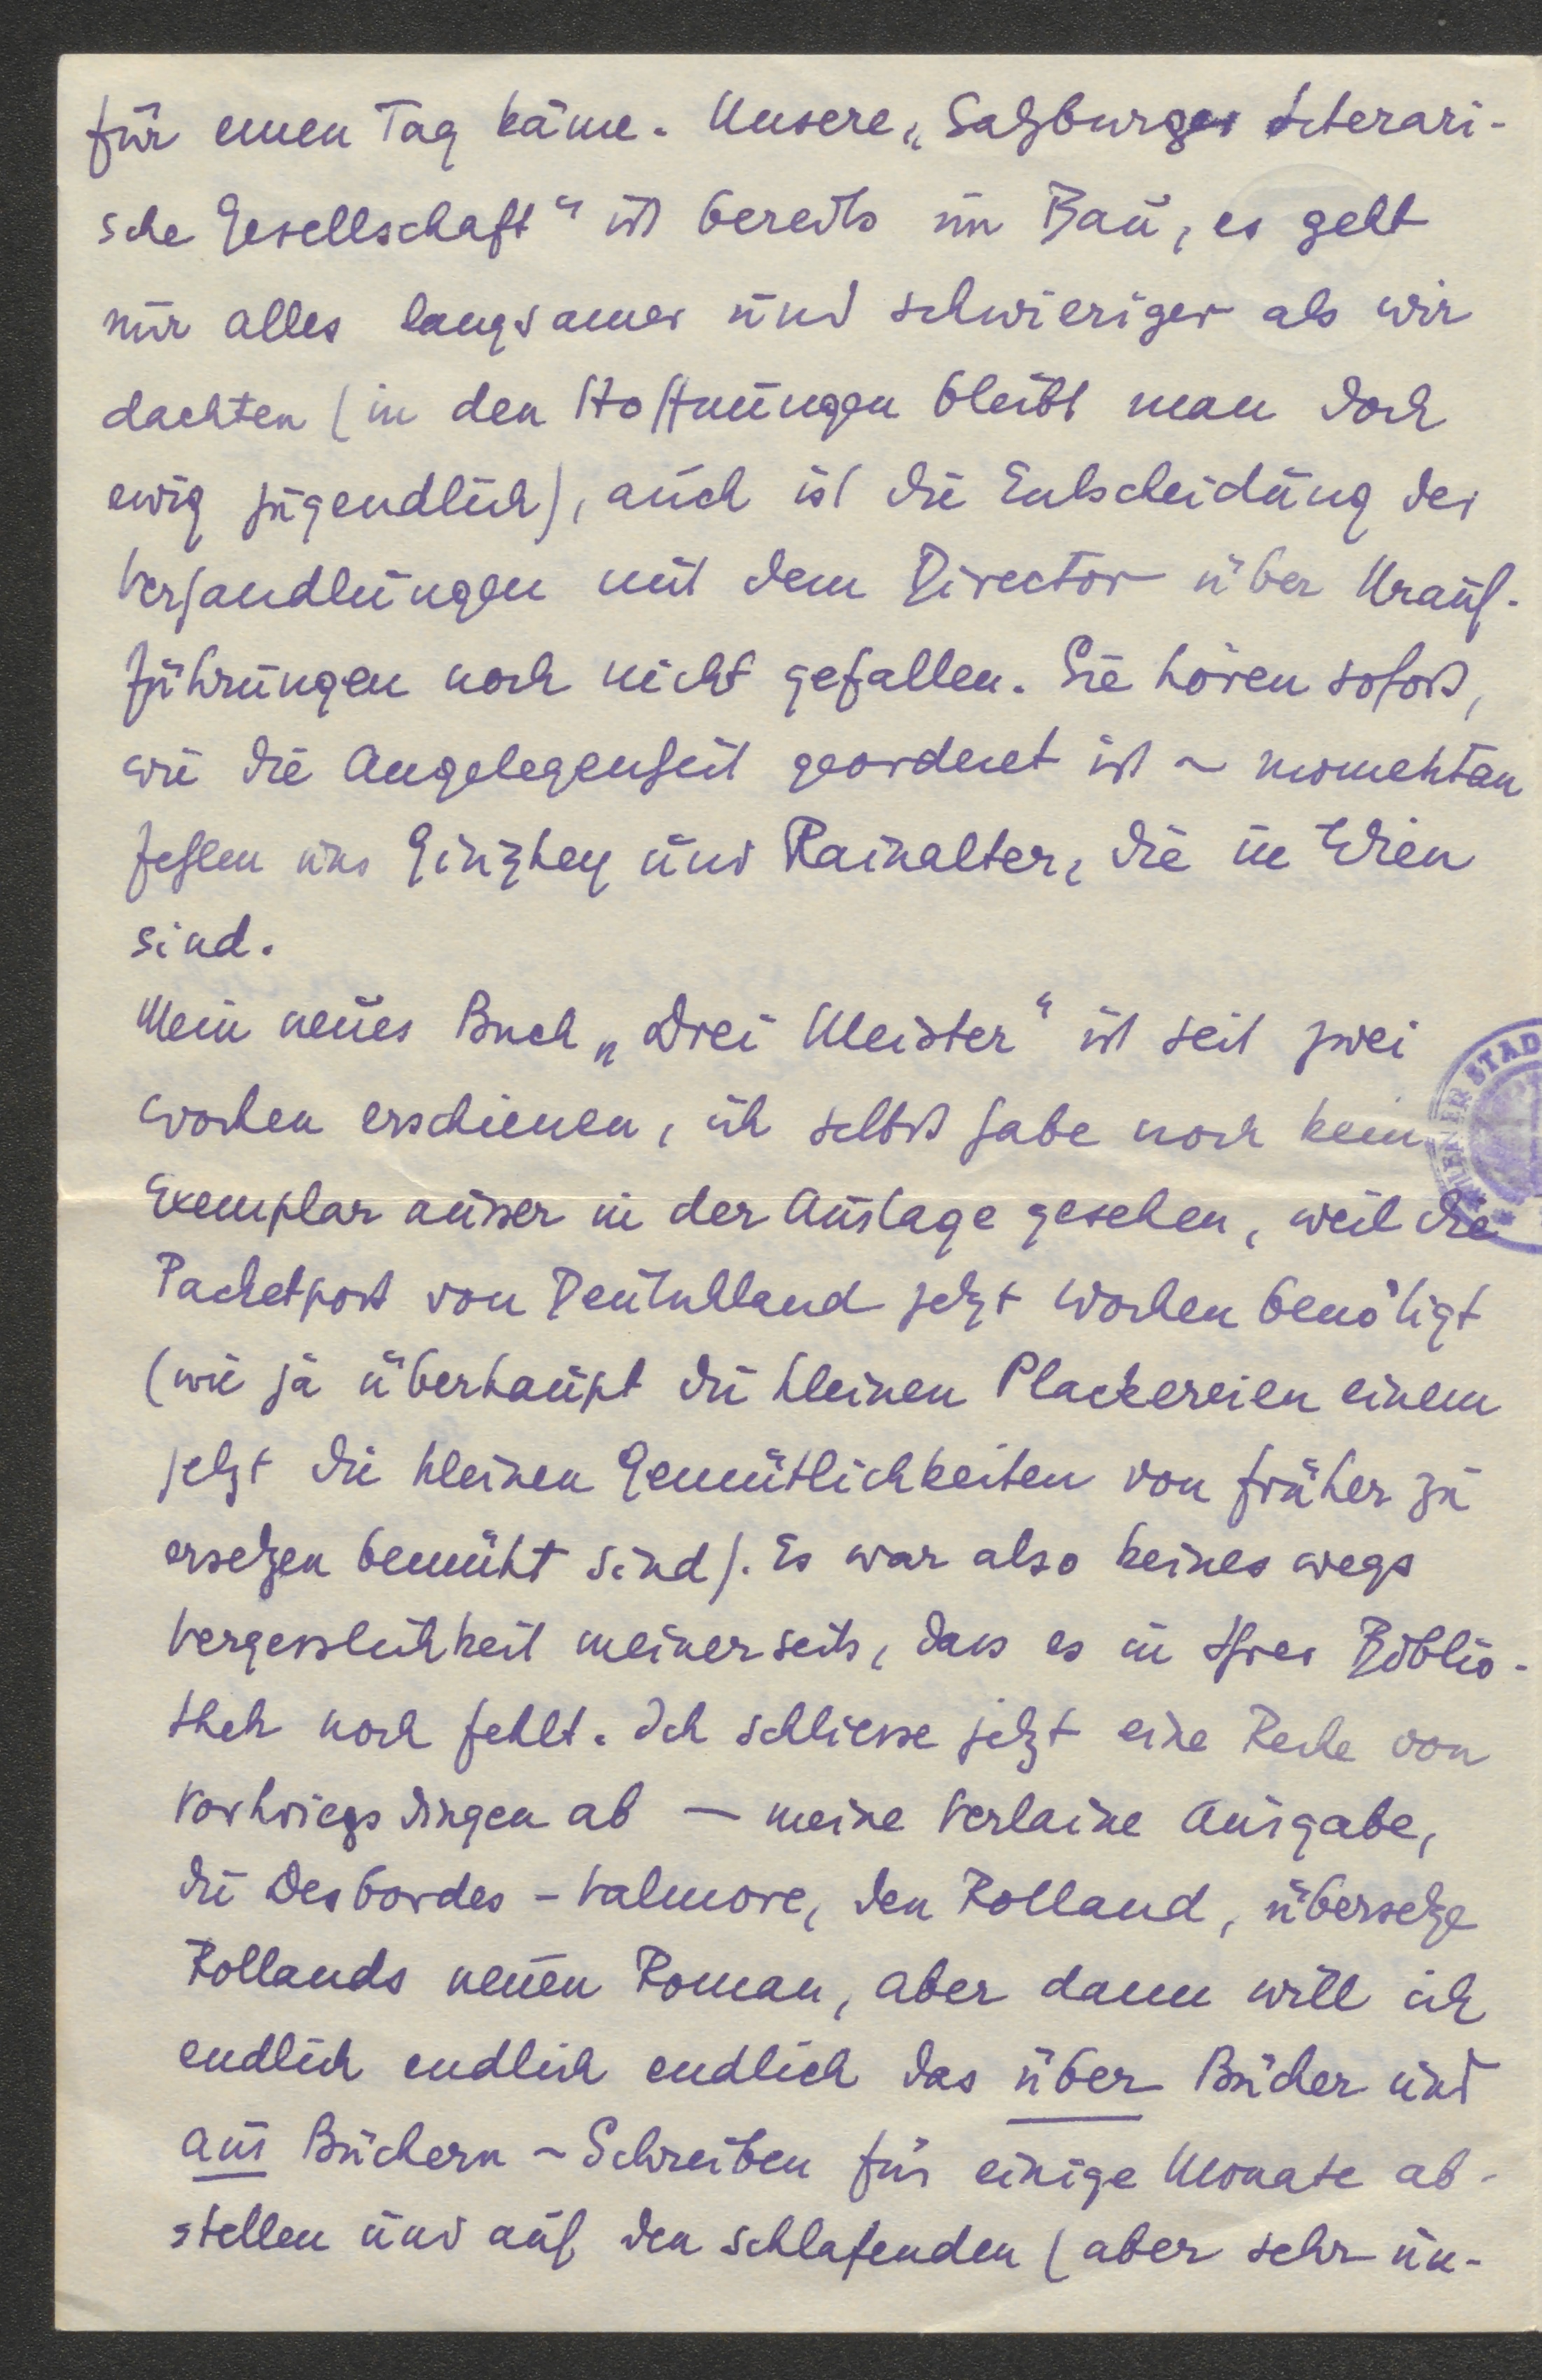 für einen Tag käme. Unsere „Salzburger Literari-
sche Gesellschaft" ist bereits im Bau, es geht
nur alles langsamer und schwieriger als wir
dachten (in den Hoffnungen bleibt man doch
ewig jugendlich), auch ist die Entscheidung der
Verhandlungen mit dem Director über Urauf-
führungen noch nicht gefallen. Sie hören sofort,
wie die Angelegenheit geordenet ist – momentan
fehlen uns Ginzkey und Rainalter, die in Wien
sind.
Mein neues Buch „Drei Meister" ist seit zwei
Wochen erschienen, ich selbst habe noch kein
Exemplar ausser in der Auslage gesehen, weil die
Packetpost von Deutschland jetzt Wochen benötigt
(wie ja überhaupt die kleinen Plackereien einem
jetzt die kleinen Gemütlichkeiten von früher zu
ersetzen bemüht sind). Es war also keineswegs
Vergesslichkeit meinerseits, dass es in Ihrer Biblio-
thek noch fehlt. Ich schliesse jetzt eine Reihe von
Vorkriegsdingen ab – meine Verlaine Ausgabe,
die Desbordes-Valmore, den Rolland, übersetze
Rollands neuen Roman, aber dann will ich
endlich endlich endlich das über Bücher und
aus Büchern – Schreiben für einige Monate ab-
stellen und auf den schlafenden (aber sehr un-
WIENER STAD